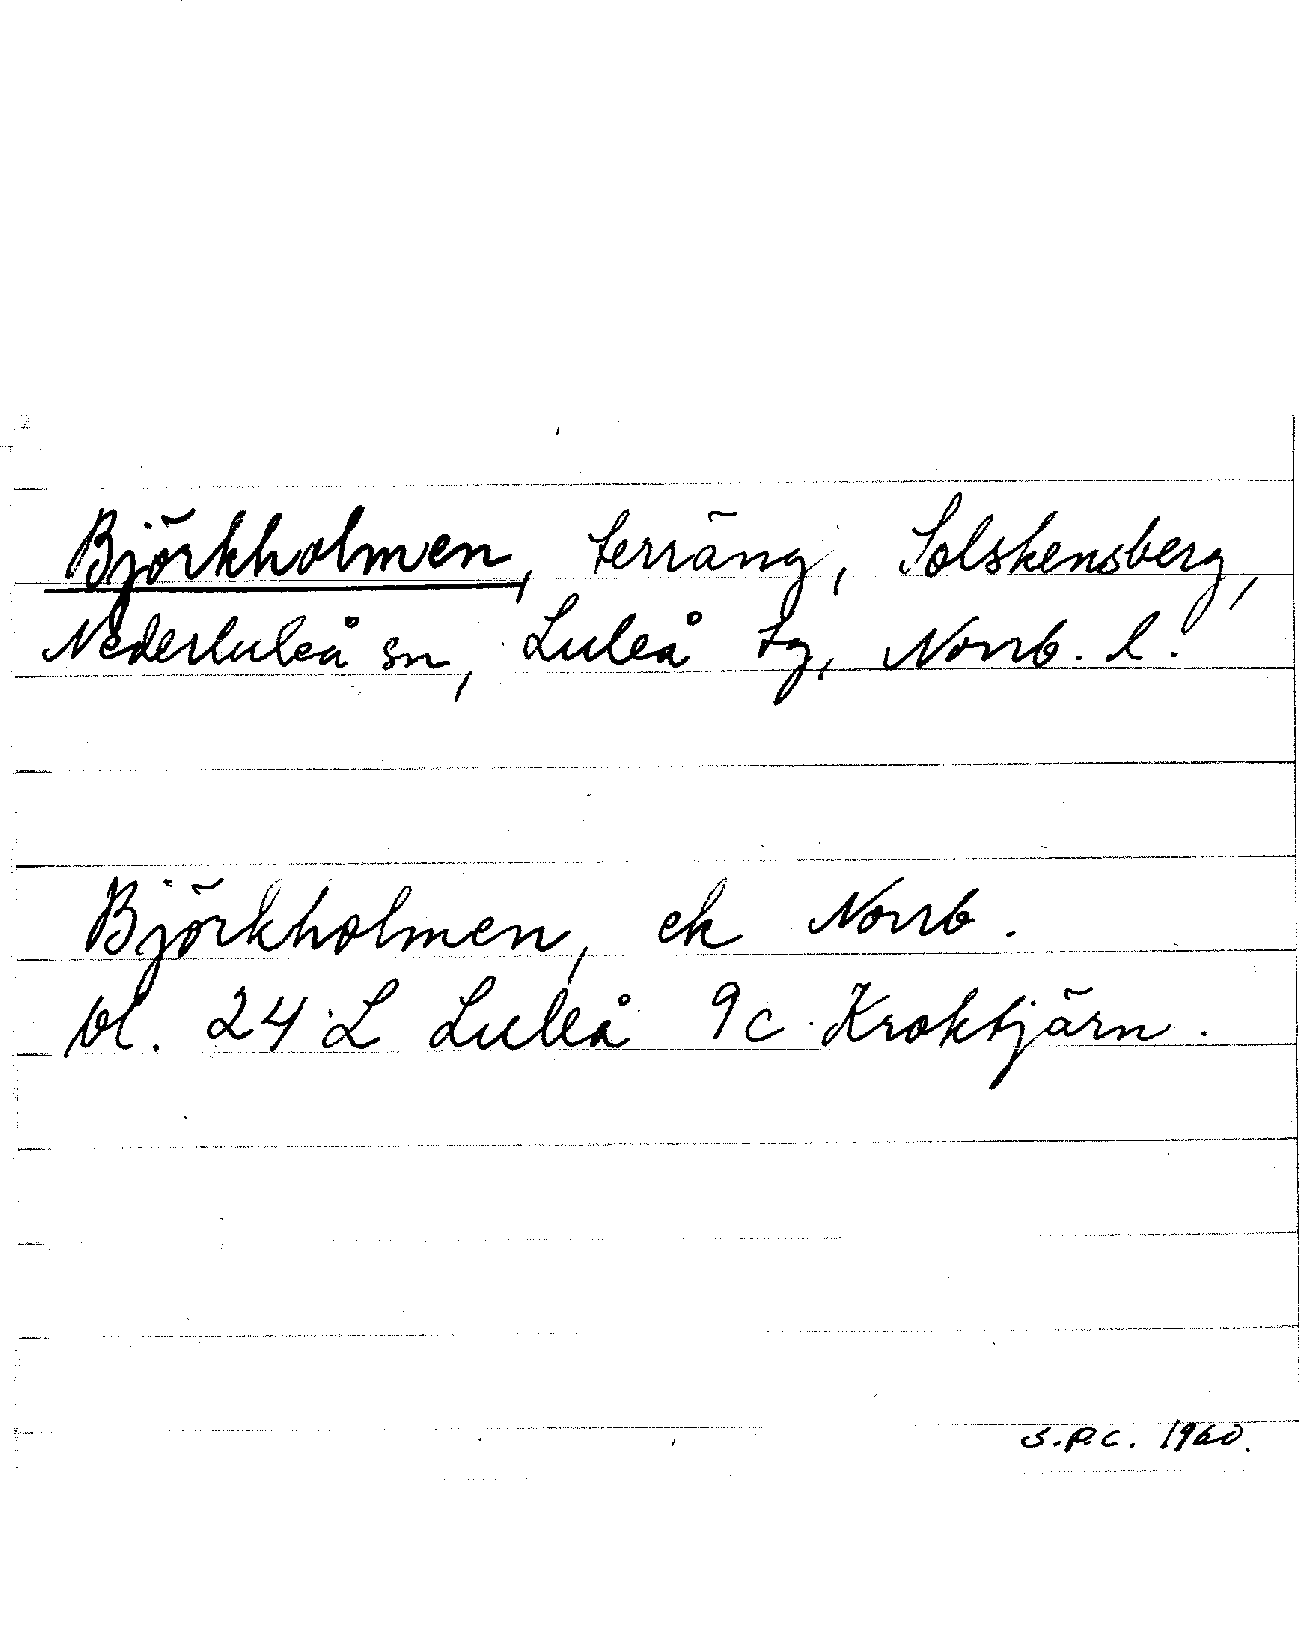 Björkholmen, terräng, Solskensberg,
Nederluleå sn, Luleå tg, Norrb. l.
Björkholmen, ek Norrb.
bl. 24 L Luleå 9c Kroktjärn.
S.P.C. 1960.